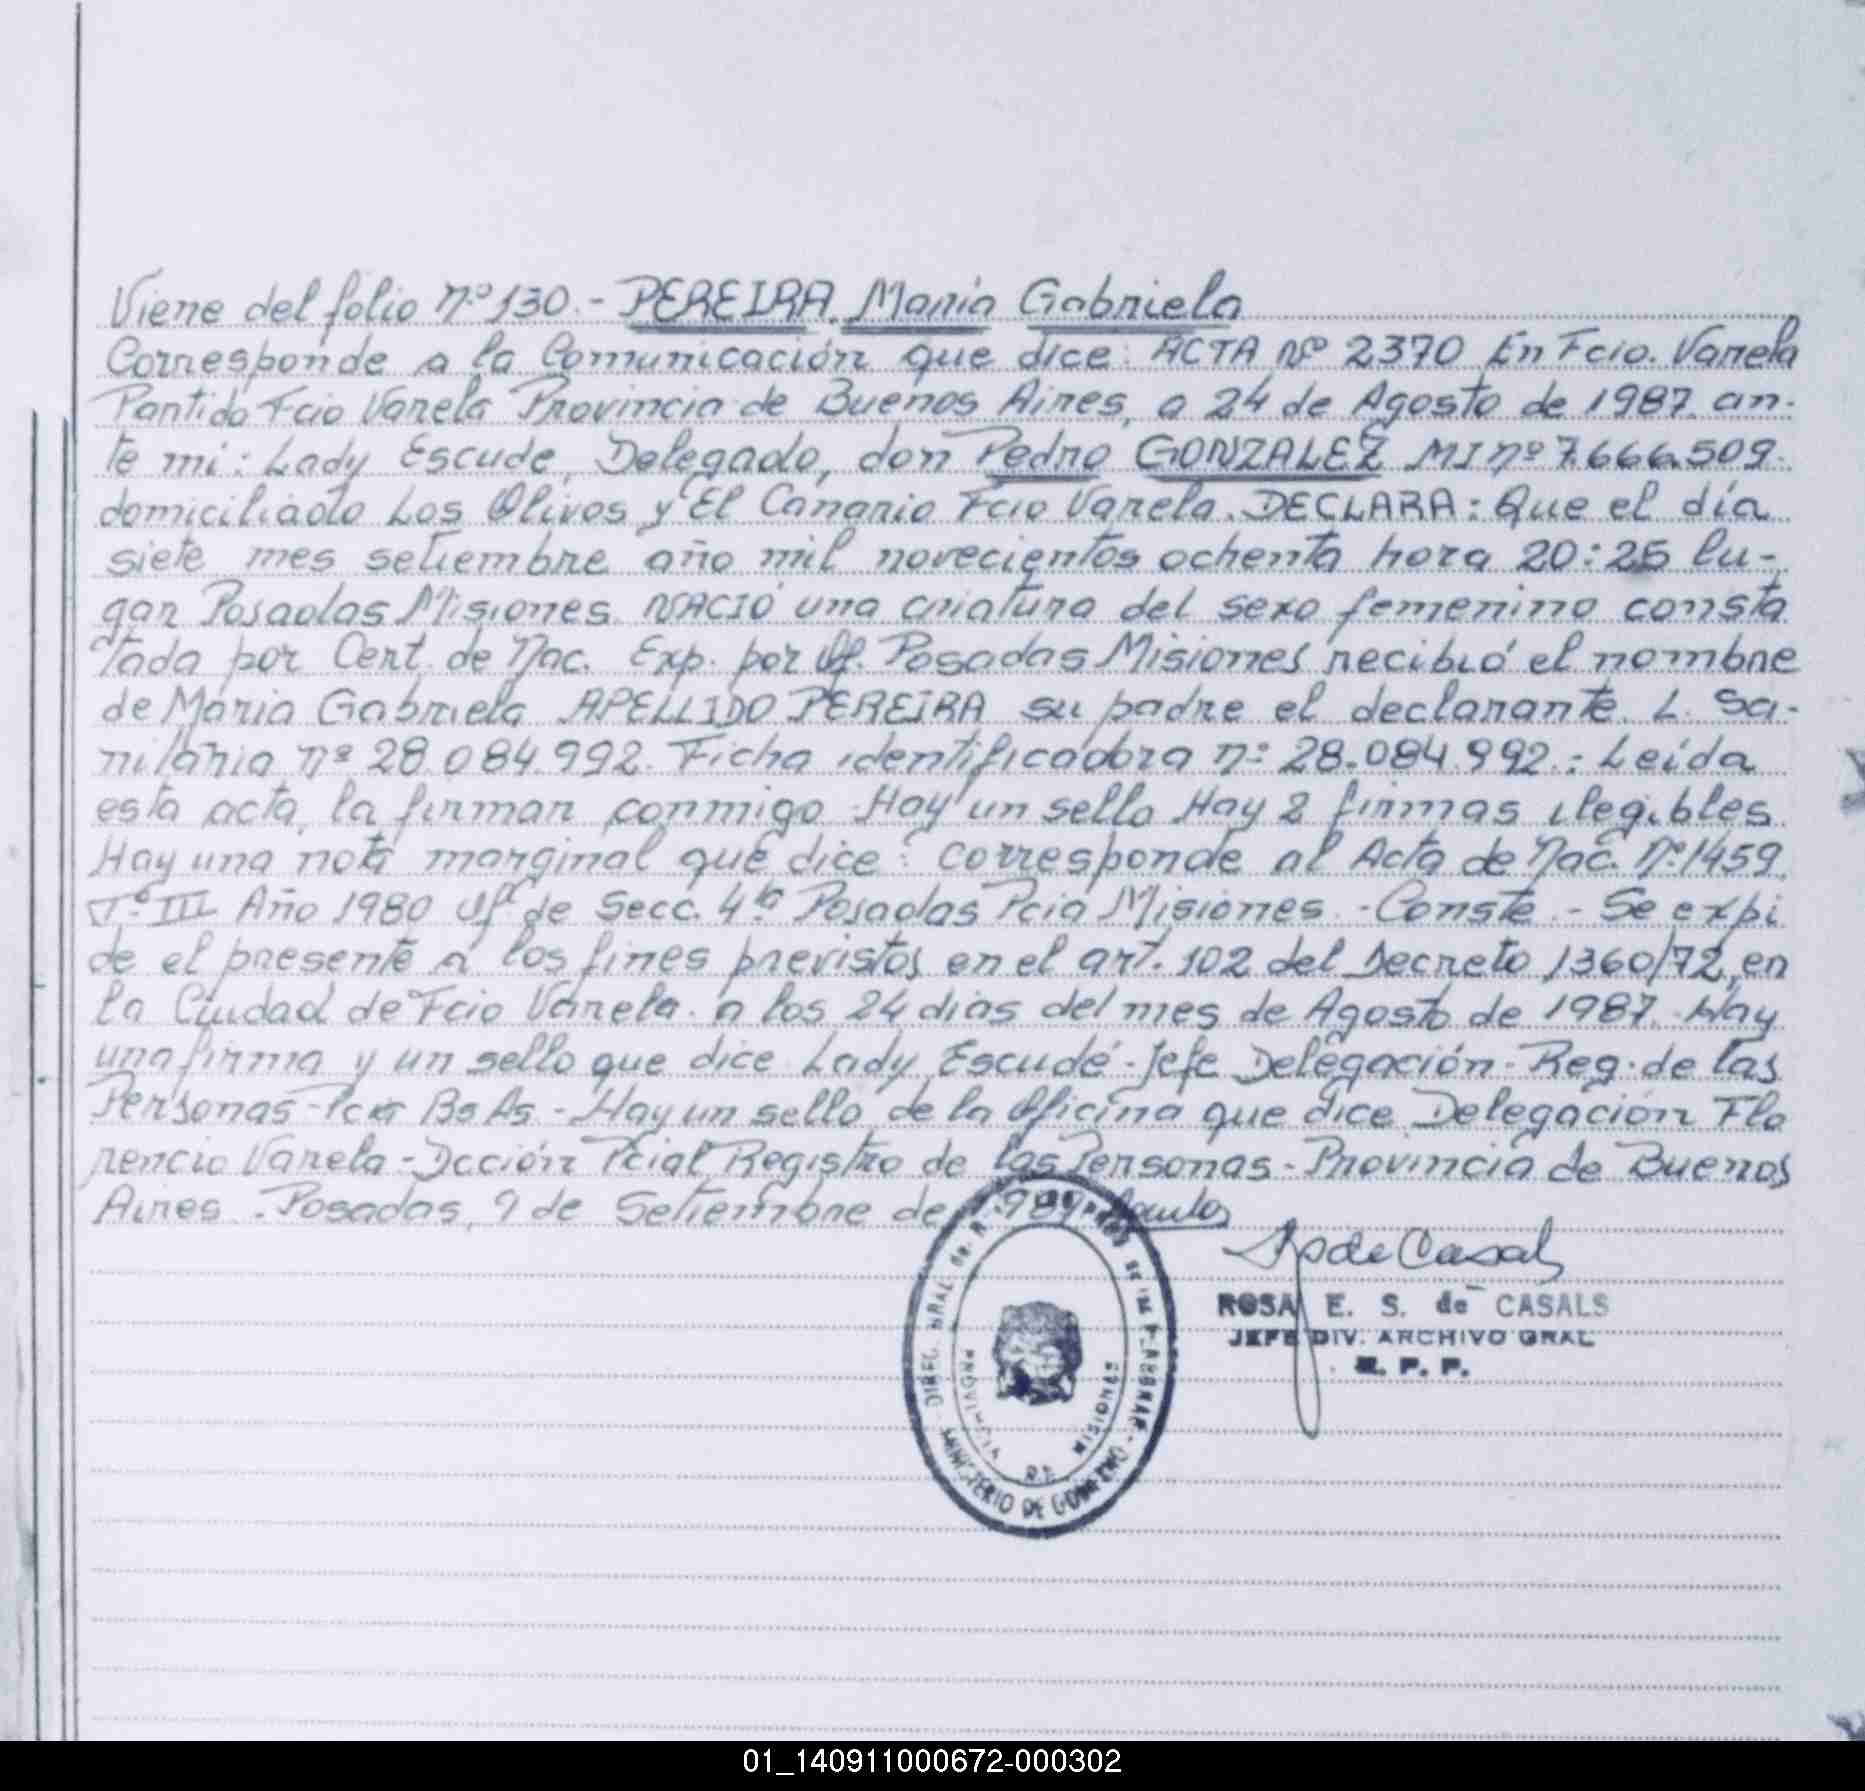 Viene del folio Nº 130.- PEREIRA María Gabriela
Corresponde a la Comunicación que dice: ACTA Nº 2370 En Fcio. Varela
Partido Fcio Varela Provincia de Buenos Aires, a 24 de Agosto de 1987. an-
te mi: Lady Escude, Delegado, don Pedro GONZALEZ MI nº 7.666.509.
domiciliado Los Olivos y El Canario Fcio Varela. DECLARA: Que el día
siete mes setiembre año mil novecientos ochenta hora 20:25 lu-
gar Posadas Misiones. NACIÓ una criatura del sexo femenino consta
tada por Cert. de Nac. Exp. por Of. Posadas Misiones recibió el nombre
de Maria Gabriela APELLIDO PEREIRA su padre el declarante. L. Sa-
nitaria nº 28.084.992. Ficha identificadora nº 28.084.992.: Leída
esta acta, la firman conmigo. Hay un sello Hay 2 firmas ilegibles
Hay una nota marginal que dice: corresponde al Acta de Nac. Nº 1459.
Tº III Año 1980 Of. de Secc. 4ta Posadas Pcia Misiones. -Conste.- Se expi
de el presente a los fines previstos en el art. 102 del Decreto 1360/72, en
la Ciudad de Fcio Varela. a los 24 dias del mes de Agosto de 1987. Hay
una firma y un sello que dice Lady Escudé - Jefe Delegación - Reg. de las
Personas - Pcia Bs As. - Hay un sello de la Oficina que dice Delegación Flo
rencio Varela - Dcción Pcial Registro de las Personas - Provincia de Buenos
Aires. - Posadas, 9 de Setiembre de
ROSA E. S. de CASALS
JEFE DIV. ARCHIVO GRAL
R. P. P.
DIREC. GRAL DE
PROVINCIA DE MISIONES
MINISTERIO DE GOBIERNO
01_140911000672-000302